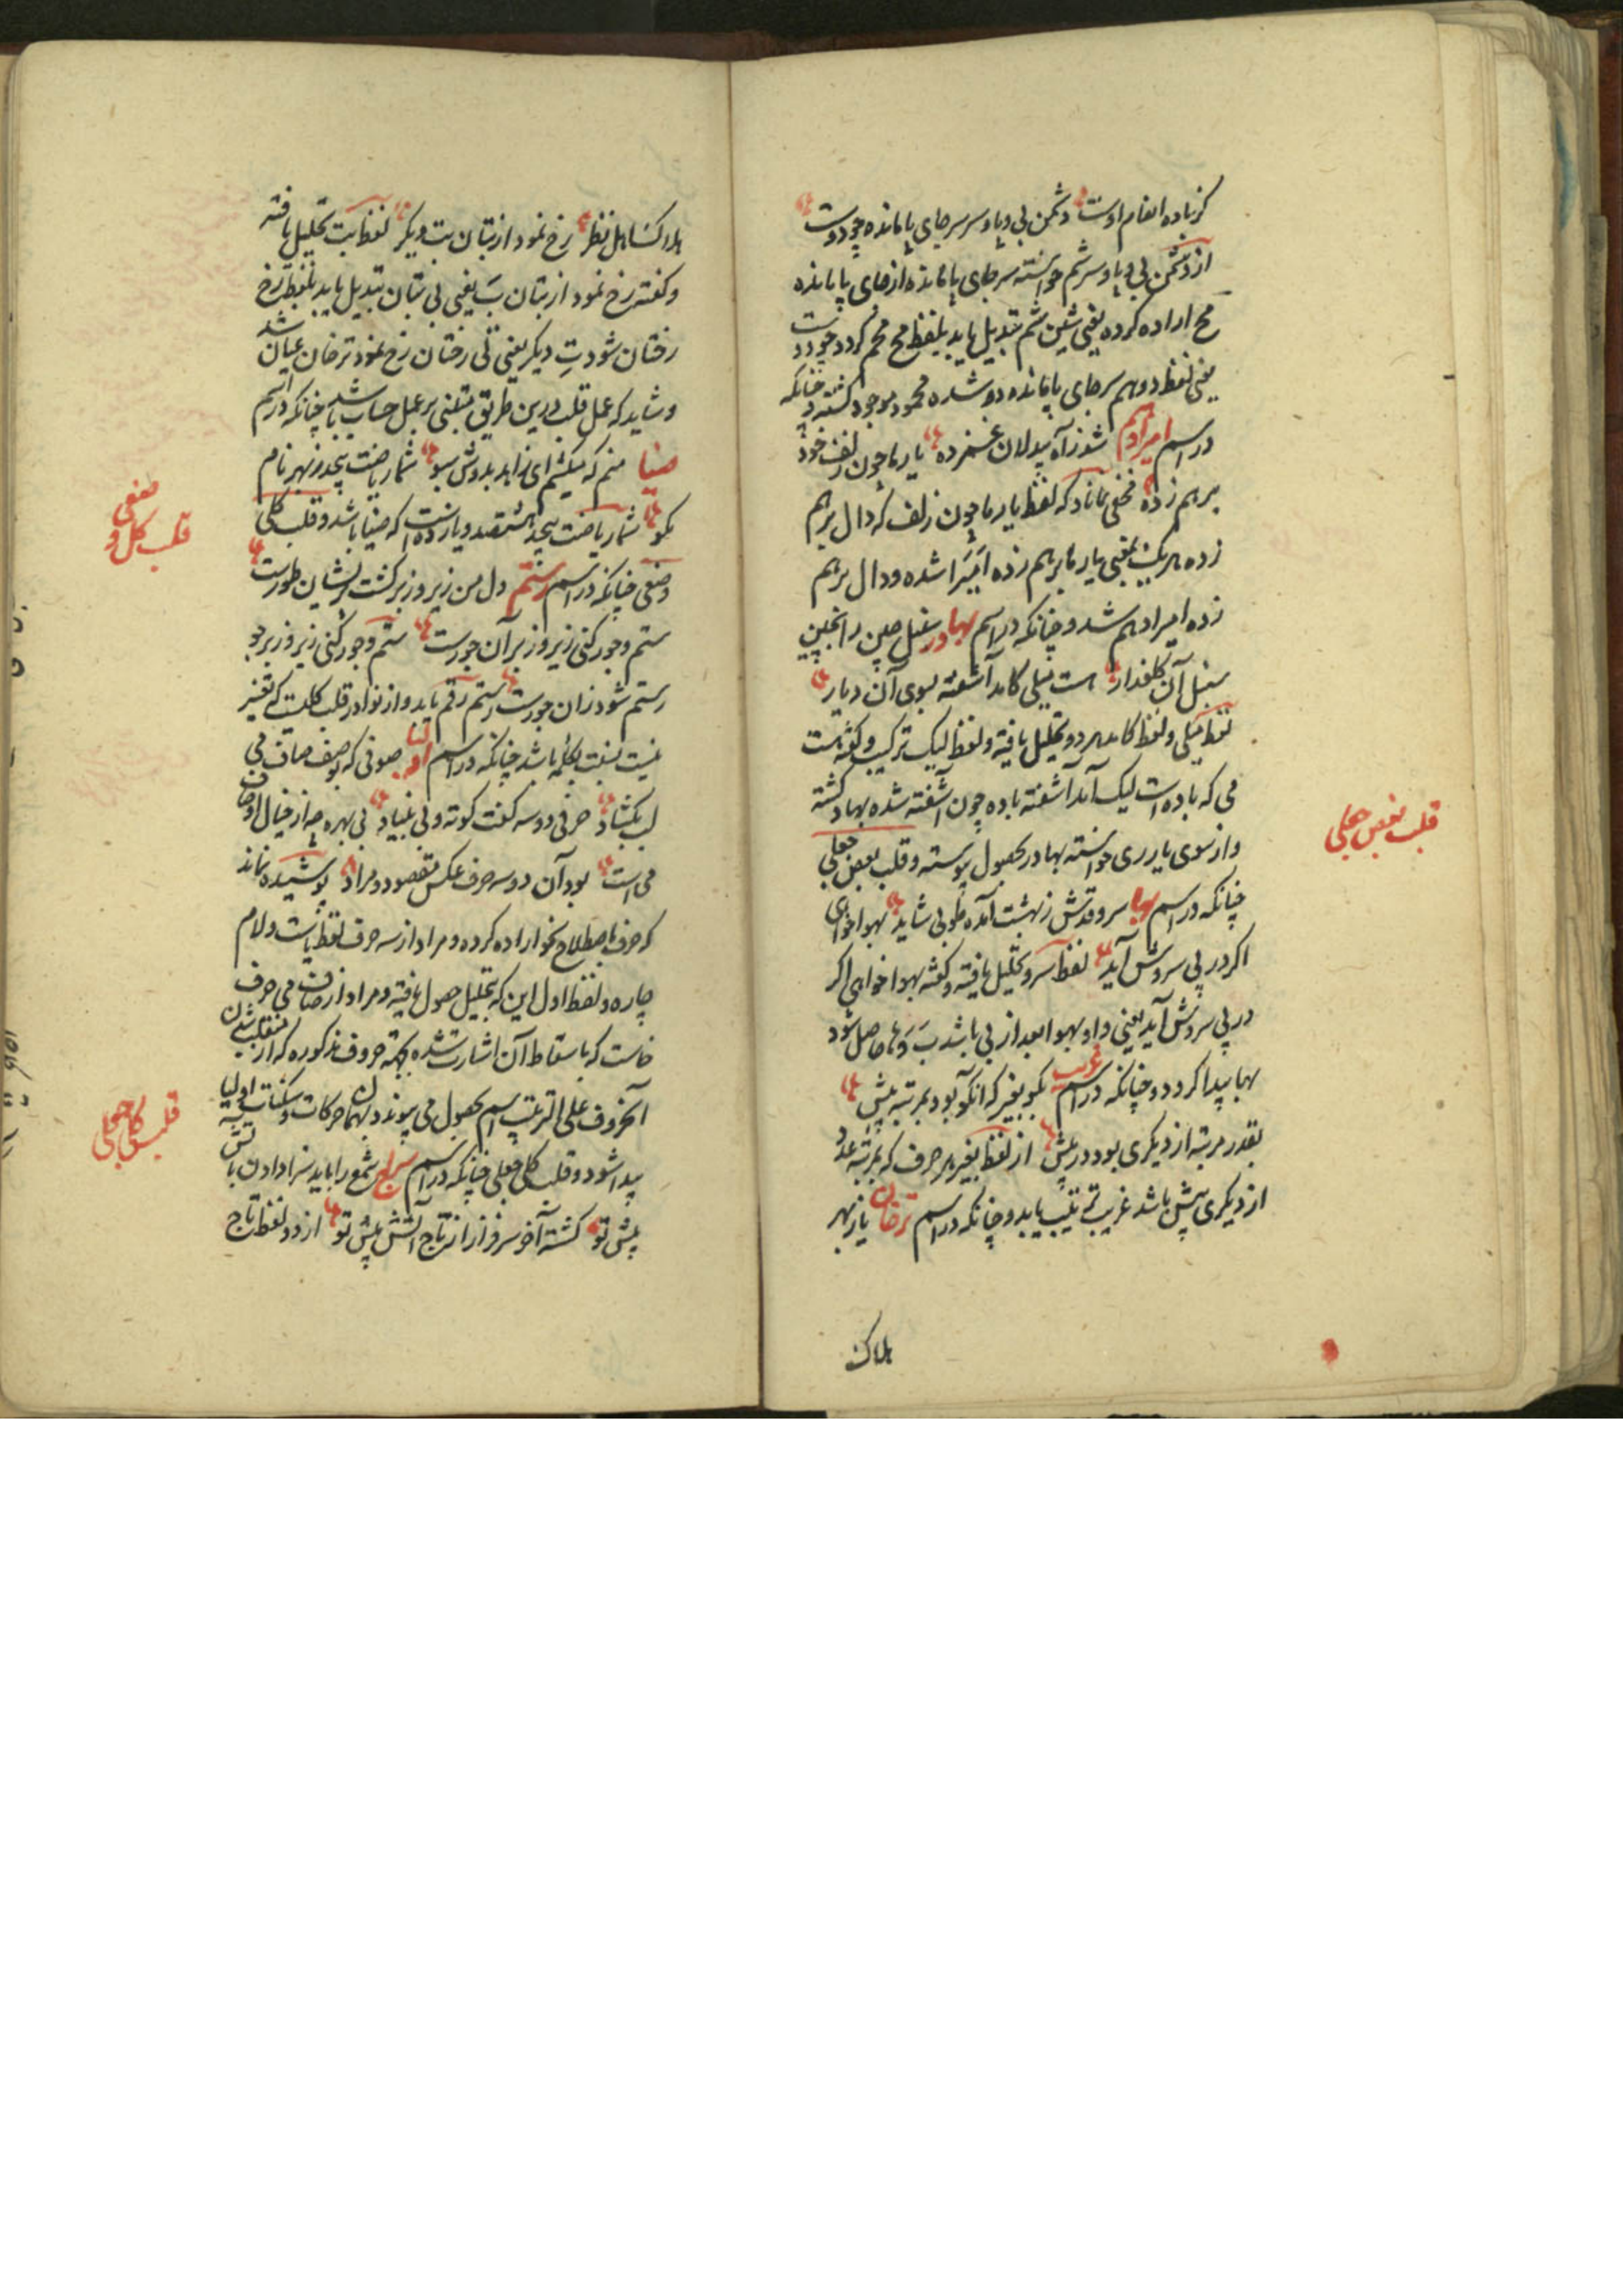 کز باده انعام اوست دشمن بی دپا و سر سر جای پا مانده چو دوست
از دشمن بی پا و سر شم خواسته سر جای پا مانده از جای پا مانده
مح اراده کرده یعنی شین شم تبدیل یابد بلفظ مح محم کردد چو دوست
یعنی لفظ دو هم سر جای پا مانده دو شده محمود موجود کشته و چنانکه
در اسم امیر ادهم شوز آه بیدلان غمزده یار ما چون زلف خود
برهم زده مخفی نماناد که لفظ یار ما چون زلف که دال برهم
زده هر یک یعنی یار ما برهم زده امیرا شده و دال برهم
زده امیر ادهم شد و چنانکه در اسم بهادر سنبل چین را نچین
سنبل آن کلعذار هست نیلی کامد آشفته بسوی آن دیار
لفظ نیلی و لفظ کامد هر دو تحلیل یافته و لفظ لیک ترکیب و کفته هست
می که باده است لیک آمد آشفته باده چون آشفته شده بهاد کشته
و از سوی یار ری خواسته بهادر بحصول پیوسته و قلب بعض جعلی
چنانکه در اسم بها سرو قدش ز بهشت آمده طوبی شاید بهوا خواهی
اکر در پی سروش آید لفظ سرو تحلیل یافته و کفته بهوا خواهی اکر
در پی سروش آید یعنی واو بهوا بعد از بی باشد حاصل شود
بها پیدا کردد و چنانکه در اسم غریب بکو بغیر که انکو بود بمرتبه پیش
بقدر مرتبه از دیکری بود در پیش از لفظ بغیر هر حرف که بمرتبه عدد
از دیکری پیش باشد غریب ترتیب یابد و چنانکه در اسم ترخان یاز بهر
هلاک
قلب بعض جعلی
هلاک اهل نظر رخ نمود از بتان بت دیکر لفظ بت تحلیل یافته
و کفته رخ نمود از بتان بَ یعنی بی بتان تبدیل یابد بلفظ رخ
رختان شود تِ دیکر یعنی تی رختان رخ نمود ترخان عیان شد
و شاید که عمل قلب درین طریق مبتنی بر عمل حساب باشد چنانکه در اسم
ضیا منم که میکشم ای زاهد بدوش سبو شمار ریاضت بیحد ز بهر نام
بکو شمار ریاضت بیحد هشتصد و یازده است که ضیا باشد و قلب کل
وضعی چنانکه در اسم رستم دل من زیر و زبر کشت پریشان طورست
ستم و جور کنی زیر و زبر آن جورست ستم و جور کنی زیر و زبر جو
رستم شود زان جورست رستم رقم یابد و از نوادر قلب کلیست که تغییر
نیست بنسبت بکلمه باشد چنانکه در اسم صوفی که بوصف صاف می
لب بکشاد حرفی دو سه کفت کوته و بی بنیاد بی بهره چه از خیال اوصاف
می است بود آن دو سه حرف عکس مقصود و مراد پوشیده نماند
که حرف باصطلاح نحو اراده کرده و مراد از سه حرف لفظ یاست و لام
چاره و لفظ اول این که بتحلیل حصول یافته و مراد از صاف می حرف
خاست که باسقاط آن اشارت شده بکتمه حروف مذکوره که از منقلب شدن
آن حروف علی الترتیب اسم بحصول می پیوندد بهمان حرکات و سکنات اولیا
پیدا شود و قلب کلی جعلی چنانکه در اسم سراج شمع را باید سزا دادن باتش
پیش تو کشته آخر سرفراز از تاج آتش پیش تو از دو لفظ تاج
قلب کل وضعی
قلب کل جعلی